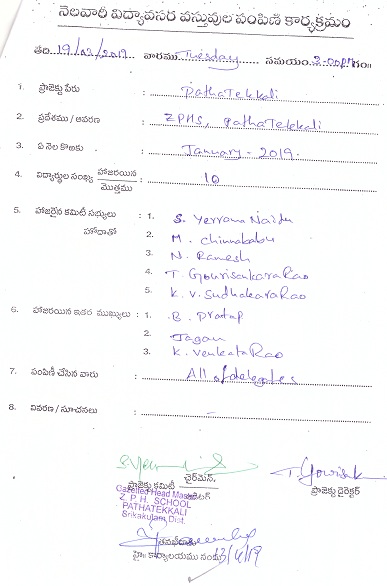 నెలవారీ విద్యావసర వస్తువుల పంపిణి కార్యక్రమం
తేది 19/02/2019 వారము Tuesday సమయం 3-00PM గం॥
1. ప్రాజెక్టు పేరు : PathaTekkali
2. ప్రదేశము / ఆవరణ : ZPHS, PathaTekkali
3. ఏ నెల కొఱకు : January - 2019.
4. విద్యార్థుల సంఖ్య హాజరయిన / మొత్తము : 10
5. హాజరైన కమిటీ సభ్యులు : 1. S. Yerranna Naidu
హోదాతో 2. M. Chinnababu
3. N. Ramesh
4. T. Gourisankara Rao
5. K. V. Sudhakara Rao
6. హాజరయిన ఇతర ముఖ్యులు : 1. B. Pratap
2. Jagan
3. K. Venkata Rao
7. పంపిణీ చేసిన వారు : All of delegates
8. వివరణ / సూచనలు : -
ప్రాజెక్టు కమిటీ చైర్‌మెన్,
ప్రాజెక్టు డైరెక్టర్
Gazetted Head Master
Z. P. H. SCHOOL
PATHATEKKALI
Srikakulam Dist.
హై॥ కార్యాలయము నందు 13/4/19